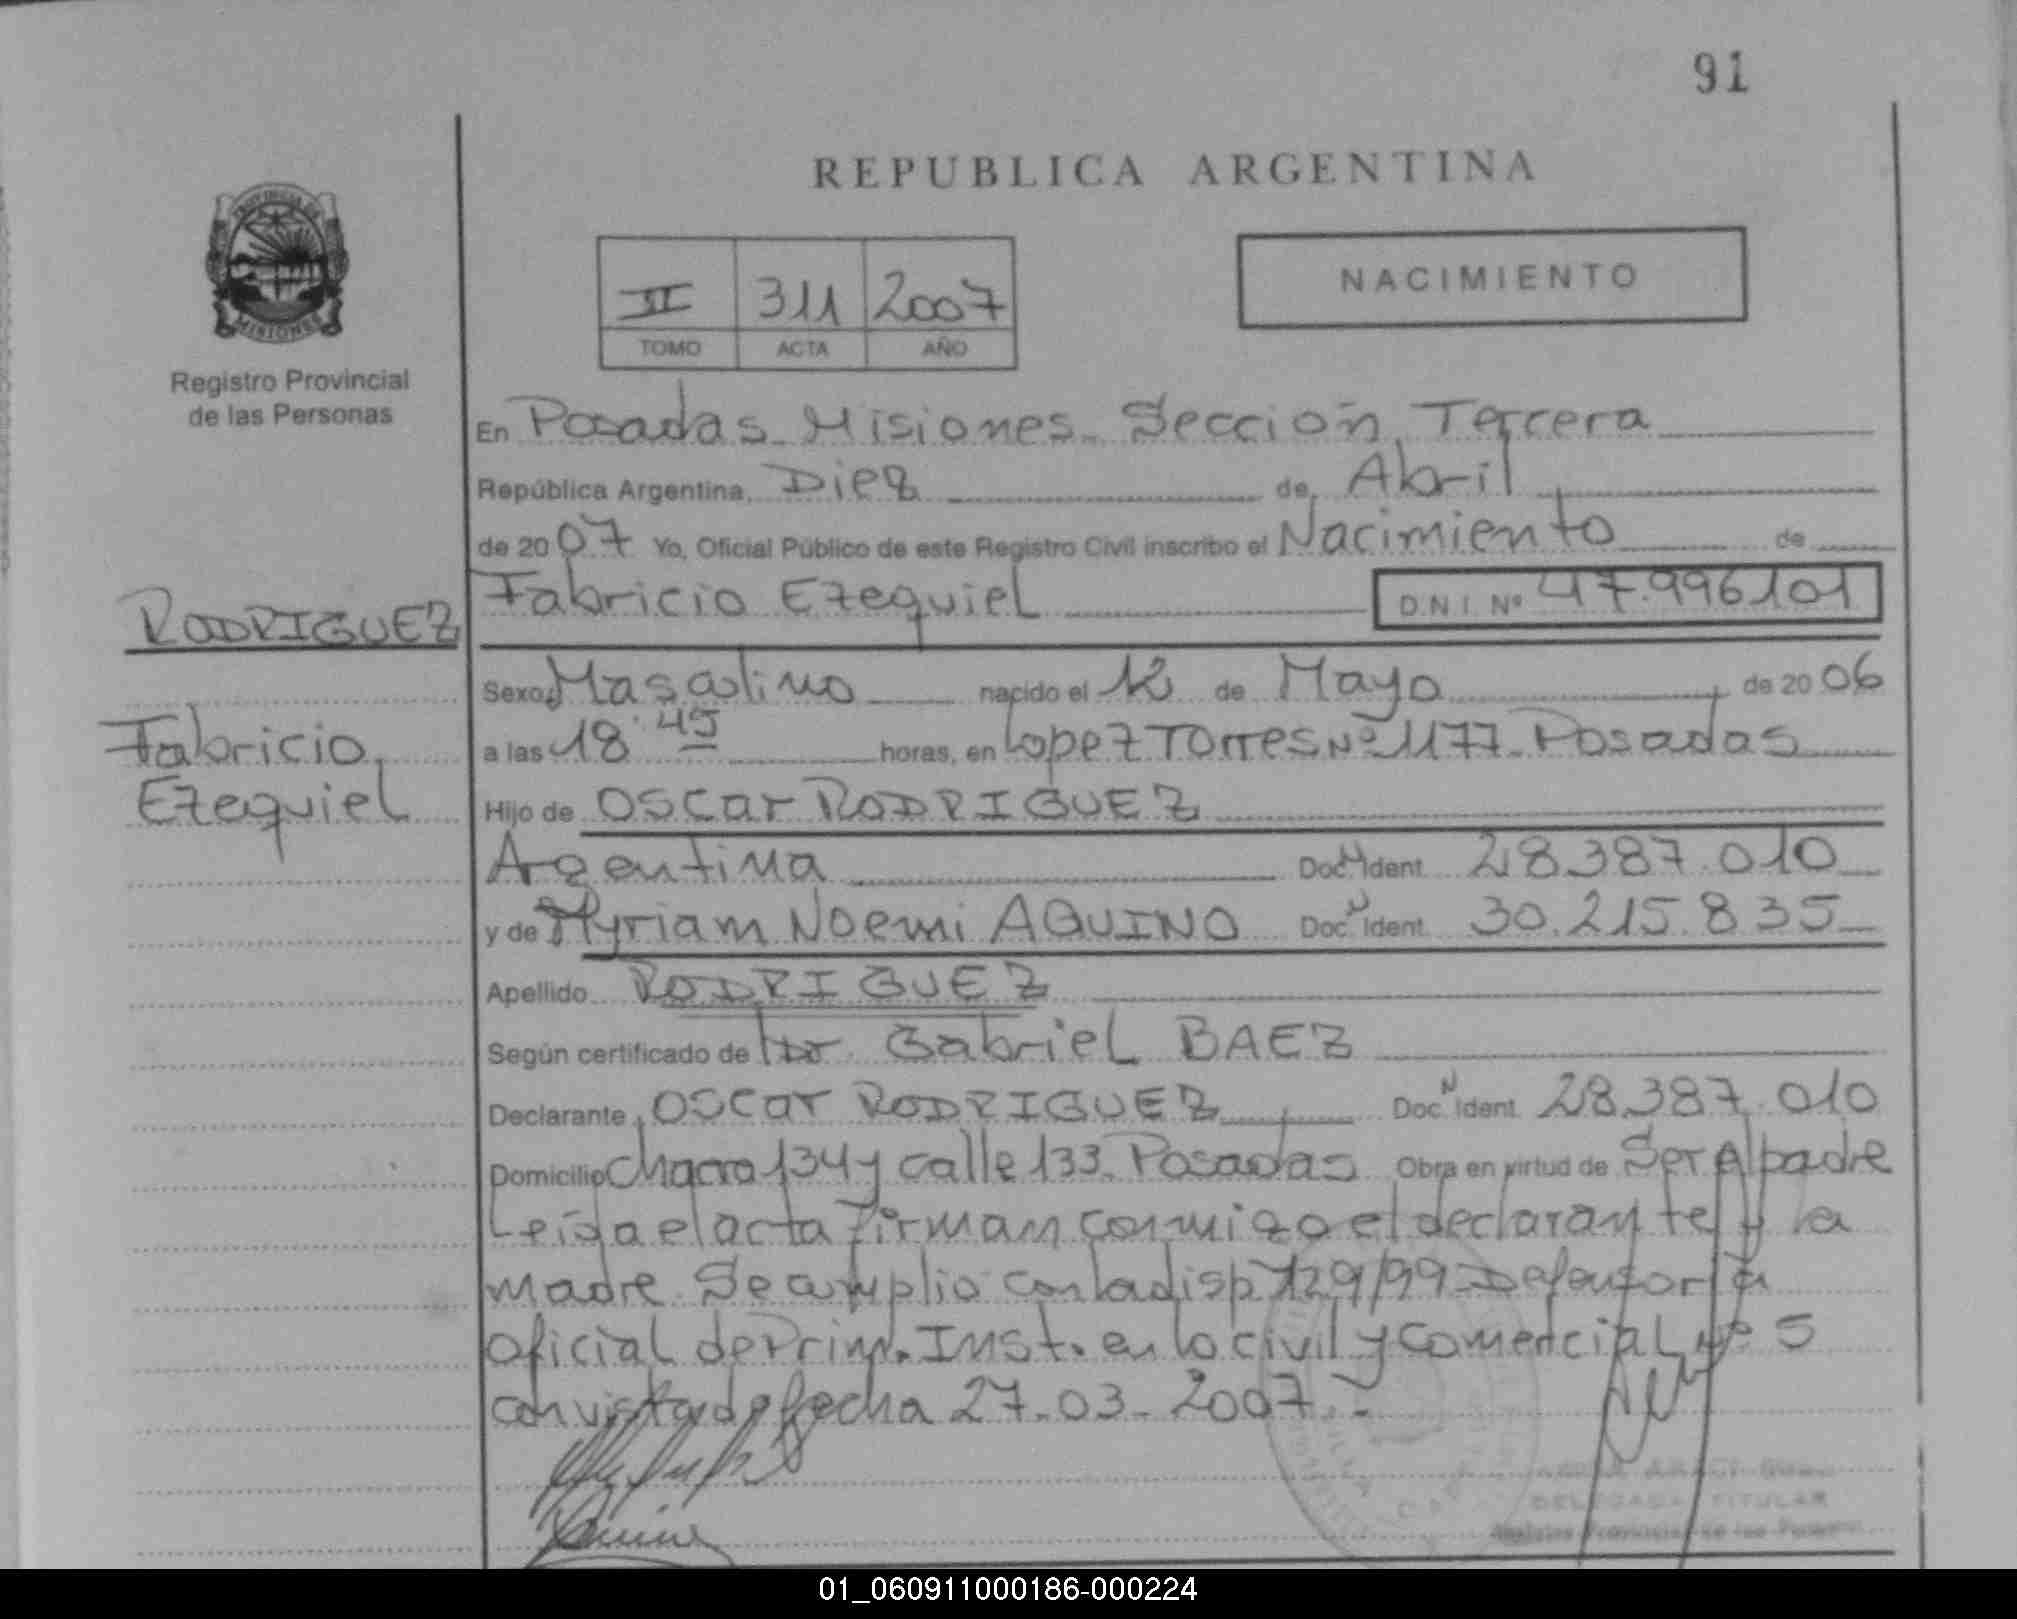 91
REPUBLICA ARGENTINA
PROVINCIA DE
MISIONES
Registro Provincial
de las Personas
II 311 2007
TOMO ACTA AÑO
NACIMIENTO
En Posadas Misiones. Sección Tercera
República Argentina, Diez de Abril
de 2007 Yo, Oficial Público de este Registro Civil inscribo el Nacimiento de
RODRIGUEZ
Fabricio Ezequiel
Fabricio Ezequiel D.N.I. Nº 47.996101
Sexo Masculino nacido el 12 de Mayo de 2006
a las 18:45 horas, en Lopez Torres Nº 1177 Posadas
Hijo de Oscar RODRIGUEZ
Argentina Doc. N Ident. 28.387.010
y de Myriam Noemi AQUINO Doc. N Ident. 30.215.835
Apellido RODRIGUEZ
Según certificado de Dr Gabriel BAEZ
Declarante Oscar RODRIGUEZ Doc. N Ident. 28.387.010
Domicilio Chacra 134 y calle 133. Posadas Obra en virtud de Ser el padre
Leida el acta firman conmigo el declarante y la
madre. Se cumplio con la disp 129/99 Defensoria
Oficial de Prim. Inst. en lo civil y Comercial Nº 5
con vista de fecha 27-03-2007.-
DELEGADA TITULAR
Registro Provincial de las Personas
01_060911000186-000224